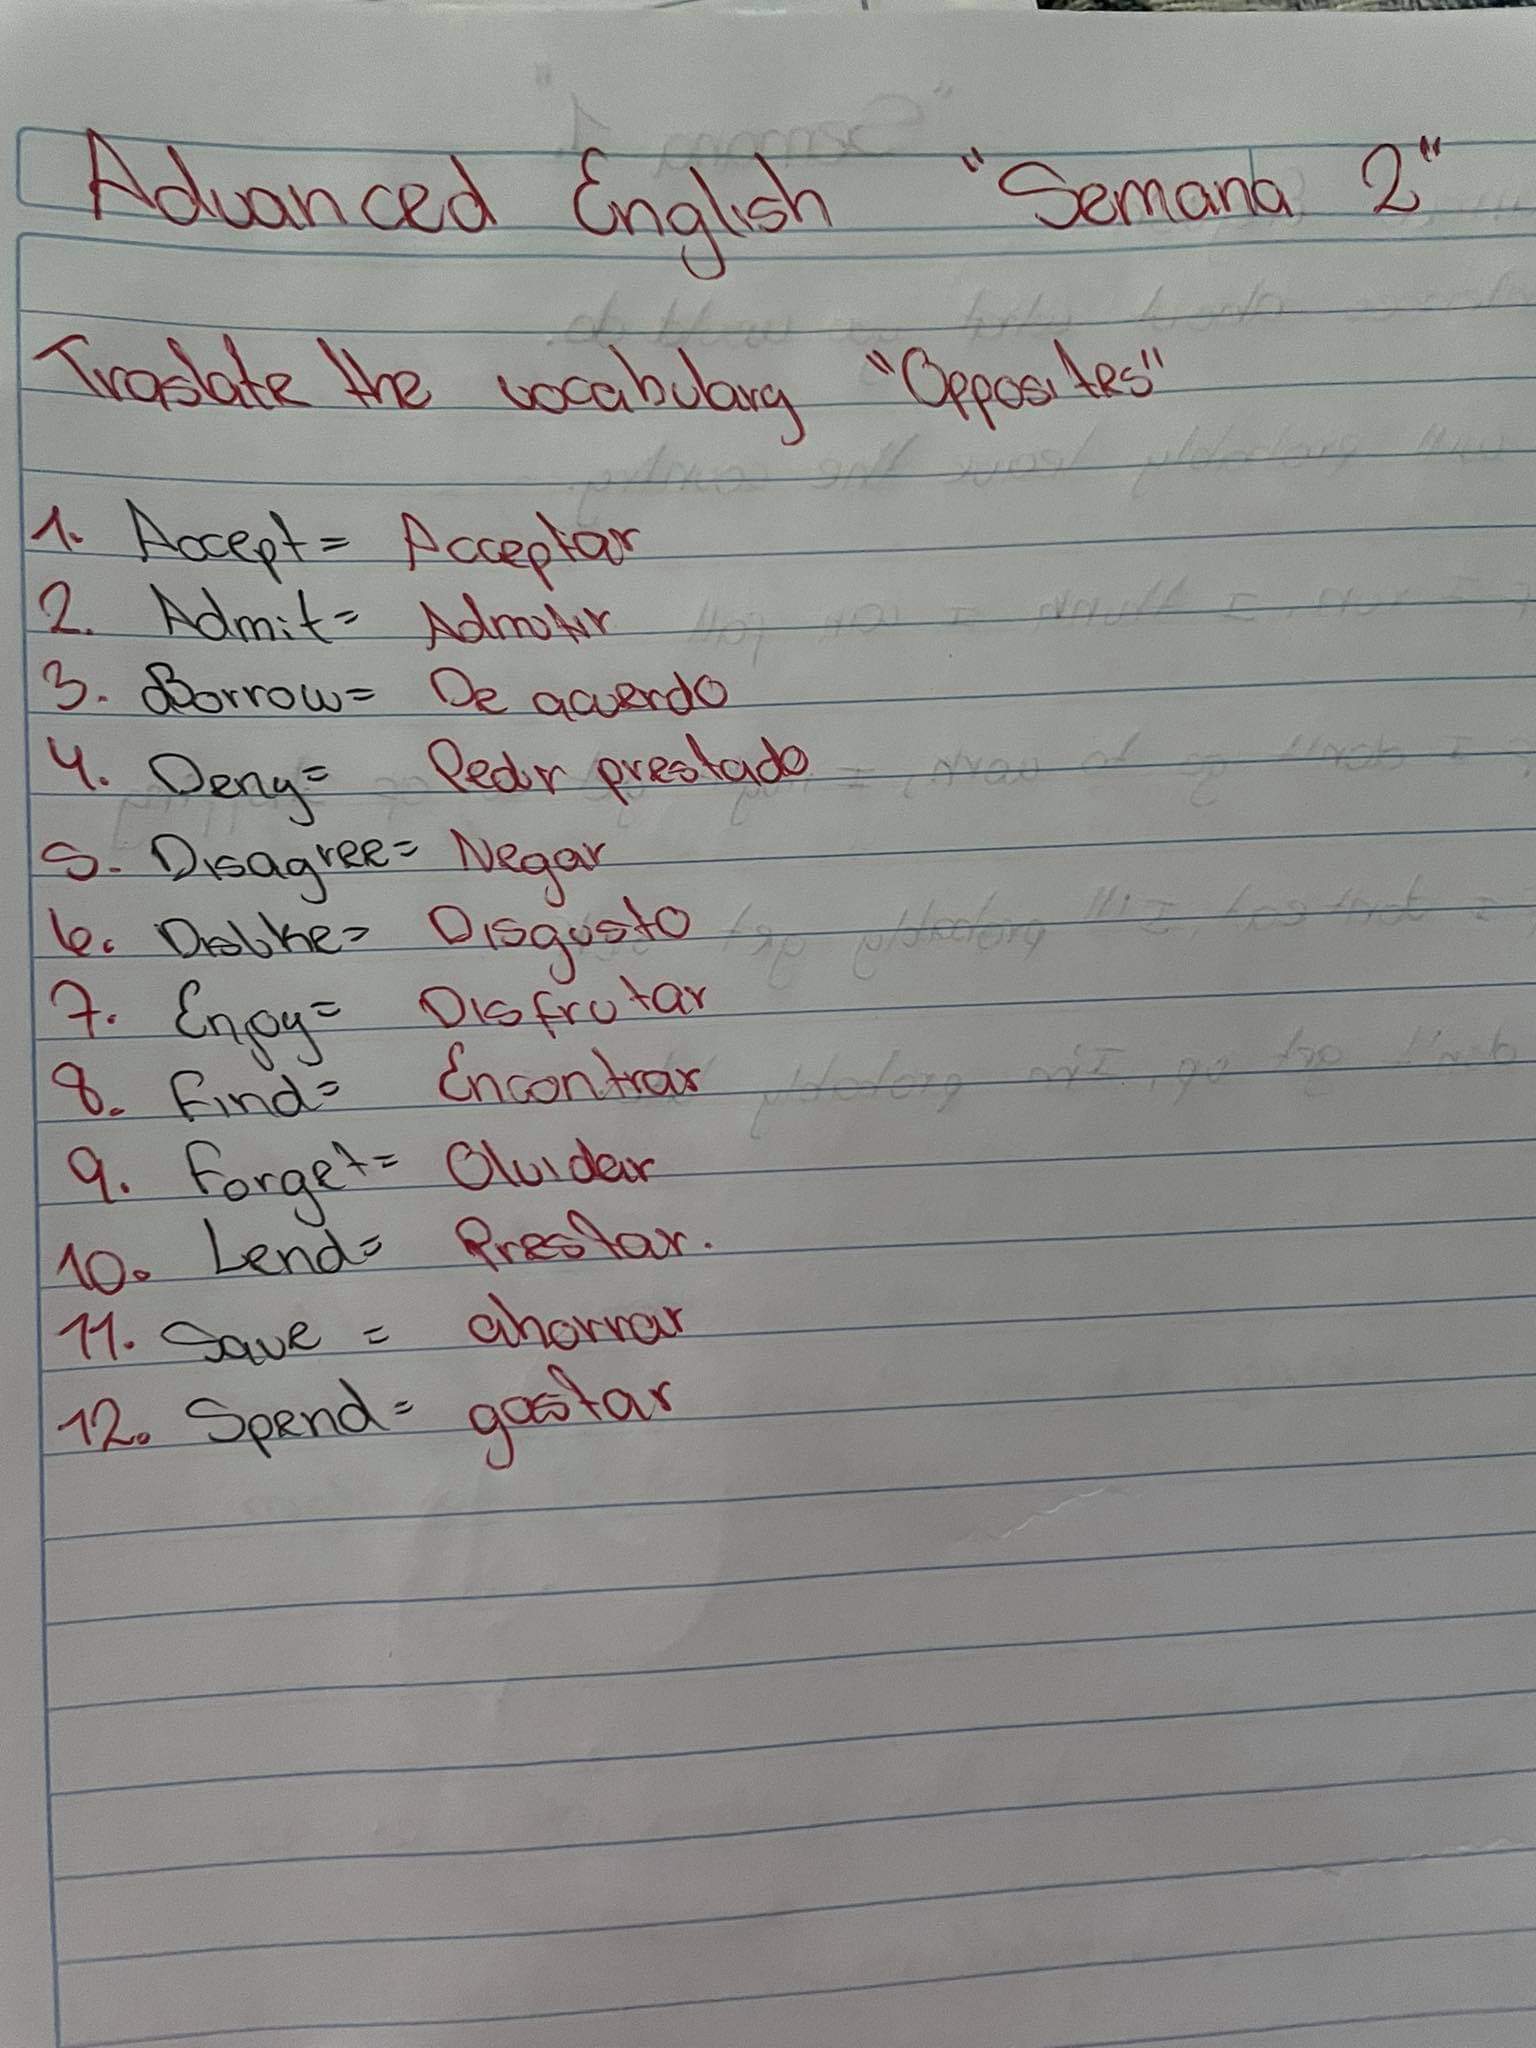 Advanced English "Semana 2"
Traslate the vocabulary "Opposites"
1. Accept= Acceptar
2. Admit= Admitir
3. Borrow= De acuerdo
4. Deny= Pedir prestado
5. Disagree= Negar
6. Dislike= Disgusto
7. Enjoy= Disfrutar
8. Find= Encontrar
9. Forget= Olvidar
10. Lend= Prestar.
11. Save = ahorrar
12. Spend= gastar